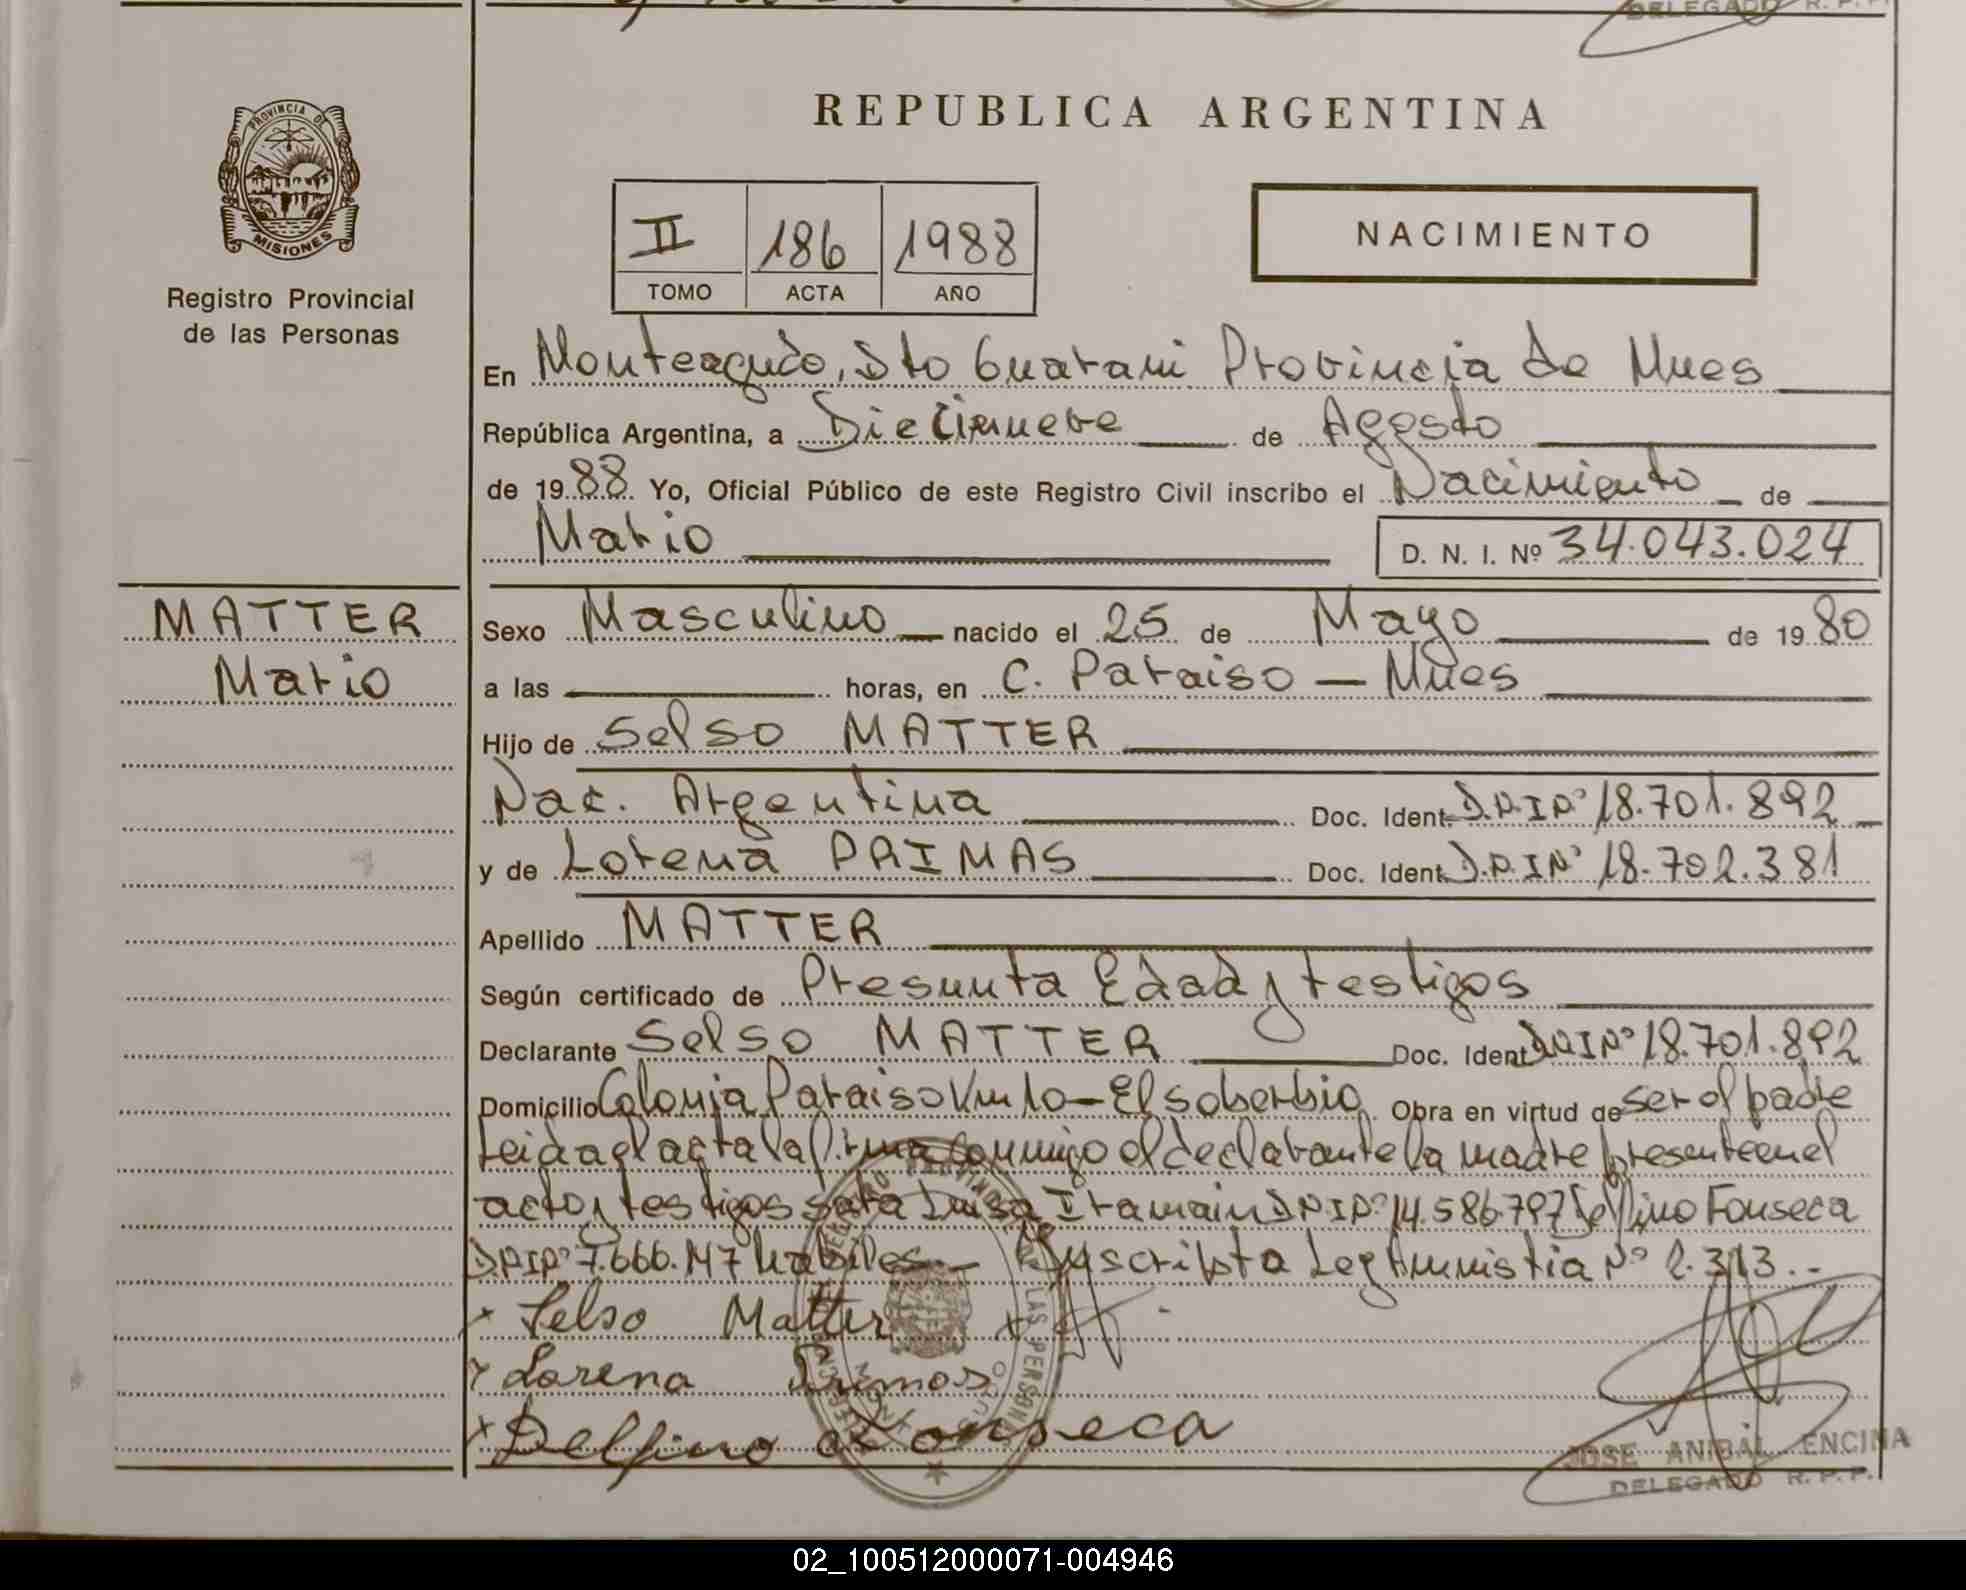 DELEGADO R. P. P.
REPUBLICA ARGENTINA
PROVINCIA DE
MISIONES
Registro Provincial
de las Personas
II 186 1988
TOMO ACTA AÑO
NACIMIENTO
En Monteagudo, Dto Guarani Provincia de Mnes
República Argentina, a Diecinueve de Agosto
de 1988. Yo, Oficial Público de este Registro Civil inscribo el Nacimiento de
Mario D. N. I. Nº 34.043.024
MATTER
Mario
Sexo Masculino nacido el 25 de Mayo de 1980
a las horas, en C. Paraiso - Mnes
Hijo de Selso MATTER
Nac. Argentina Doc. Ident. D.N.I Nº 18.701.892
y de Lorena PRIMAS Doc. Ident. D.N.I Nº 18.702.381
Apellido MATTER
Según certificado de Presunta Edad y testigos
Declarante Selso MATTER Doc. Ident. DNI Nº 18.701.892
Domicilio Colonia Paraiso - El soberbio Obra en virtud de ser el padre
Leida el acta la firma conmigo el declarante la madre presente en el
acto y testigos Sara Luisa Itamain DNI Nº 14.586.797 Delfino Fonseca
DNI Nº 7.666.147 habiles. - Inscripta Ley Amnistia Nº 2.313. -
x Selso Matter x
x Lorena Primas
x Delfino Fonseca
JOSE ANIBAL ENCINA
DELEGADO R. P. P.
02_100512000071-004946